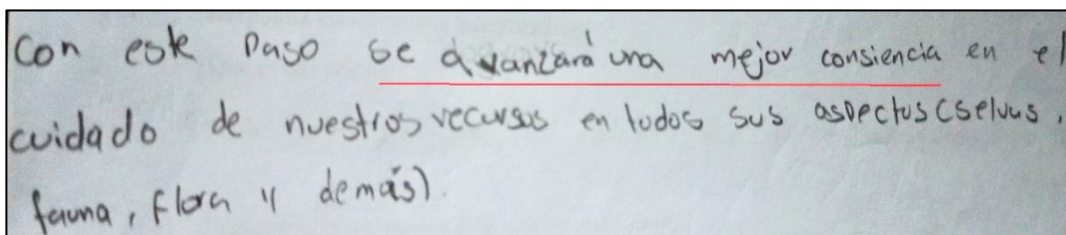 Con este paso se avanzará una mejor consiencia en el
cuidado de nuestros recursos en todos sus aspectos (selvas,
fauna, flora y demás).